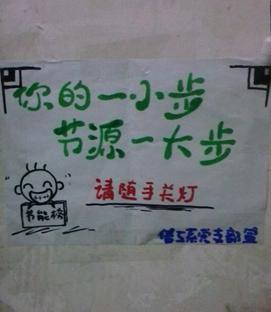 你的一小步
节源一大步
请随手关灯
节能榜